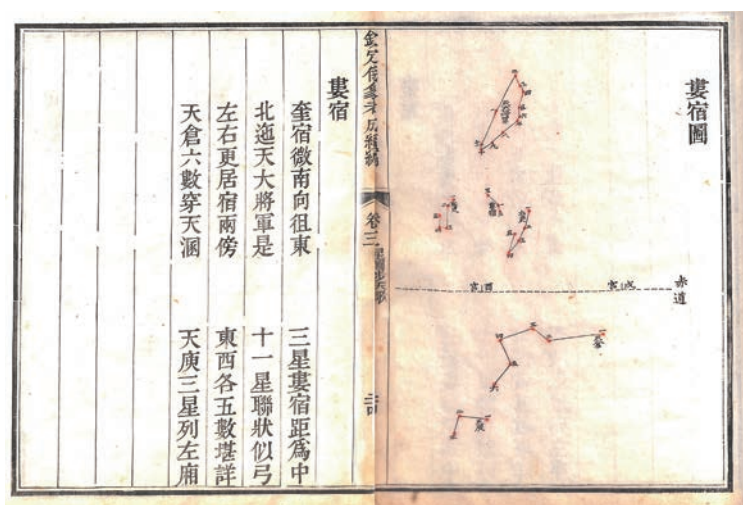 婁宿圖
赤道
戌宮
酉宮
欽定儀象考成續編
卷三
婁宿
奎宿微南向徂東 三星婁宿距爲中
北迤天大將軍是 十一星聯狀似弓
左右更居宿兩傍 東西各五數堪詳
天倉六數穿天溷 天庾三星列左廂